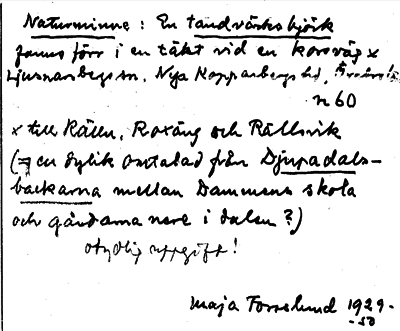 Naturminne: En tandvärksbjörk
fanns förr i en täkt vid en korsväg x
Ljusnarsbergs sn. Nya Kopparbergs hd, Örebro l.
n 60
x till Rällen, Roxäng och Rällsvik
(= en dylik omtalad från Djupadals-
backarna mellan Dammens skola
och gårdarna nere i dalen?)
otydlig uppgift!
Maja Forsslund 1929-
-30